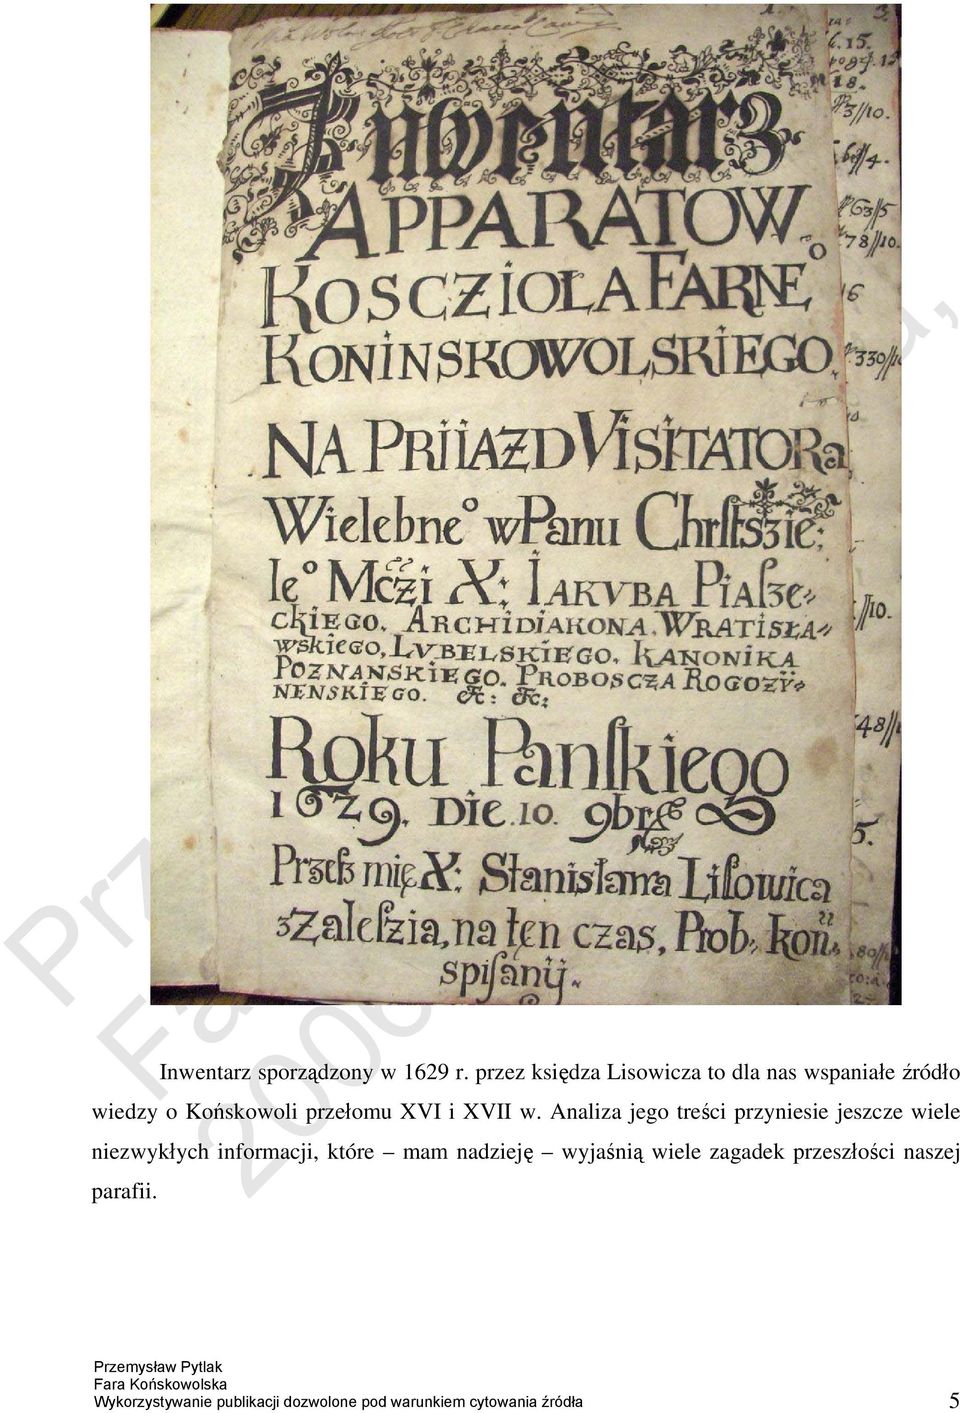 Inwentarz
APPARATOW
KOSCZIOŁA FARNEº
KONINSKOWOLSKIEGO.
NA PRIIAZD VISITATORa
Wielebneº w Panu Chrſtszie:
leº Mczi X: IAKVBA PIAſze⸗
ckiEGO. ARCHIDIAKONA. WRATISŁA⸗
wskieGO, LVBELSKIEGO. KANONIKA
POZNANSKIEGO. PROBOSCZA ROGOZY⸗
NENSKIEGO. &c: &c:
Roku Panſkiego
1629. Die. 10. 9bris
Przeſz mię X: Stanisława Liſowica
z Zaleſzia, na ten czas, Prob. koń.
spiſanÿ.
3.
6.15.
18.
3//10.
78//10.
16
330//
//10.
48//
5.
Inwentarz sporządzony w 1629 r. przez księdza Lisowicza to dla nas wspaniałe źródło
wiedzy o Końskowoli przełomu XVI i XVII w. Analiza jego treści przyniesie jeszcze wiele
niezwykłych informacji, które – mam nadzieję – wyjaśnią wiele zagadek przeszłości naszej
parafii.
Przemysław Pytlak
Fara Końskowolska
Wykorzystywanie publikacji dozwolone pod warunkiem cytowania źródła 5